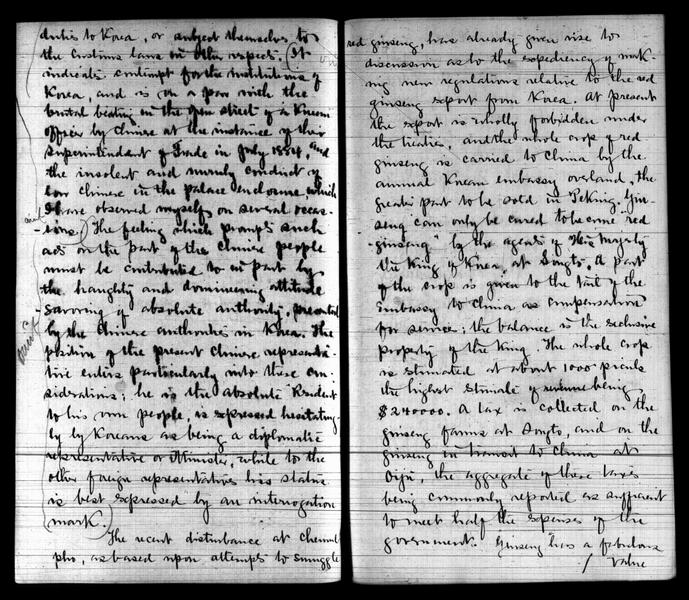 duties to Korea, or subject themselves to
the customs laws in other respects. (It
indicates contempt for the institutions of
Korea, and is on a par with the
brutal beating in the open street of a Korean
officer by Chinese at the instance of their
Superintendent of Trade in July 1884, and
the insolent and unruly conduct of
low Chinese in the palace enclosure, which
I have observed myself on several occas-
-sions.) The feeling which prompts such
acts on the part of the Chinese people
must be contributed to in part by
the haughty and domineering attitude
- savoring of absolute authority, presented
by the Chinese authorities in Korea. The
position of the present Chinese representa-
tive enters particularly into these con-
siderations; he is the absolute "Resident"
to his own people, is expressed hesitating-
ly by Koreans as being a diplomatic
representative or Minister, while to the
other foreign representatives his status
is best expressed by an interrogation
mark.)
The recent disturbance at Chemul-
pho, as based upon attempts to smuggle
and
omit
red ginseng, has already given rise to
discussion as to the expediency of mak-
ing new regulations relative to the red
ginseng export from Korea. At present
the export is wholly forbidden under
the treaties, and the whole crop of red
ginseng is carried to China by the
annual Korean embassy overland, the
greater part to be sold in Peking. Gin-
seng can only be cured to become "red
ginseng" by the agents of His Majesty
the King of Korea, at Songto. A part
of the crop is given to the suit of the
embassy to China as compensation
for service; the balance is the exclusive
property of the King. The whole crop
is estimated at about 1000 piculs
the highest estimate of revenue being
$240000. A tax is collected on the
ginseng farms at Songto, and on the
ginseng in transit to China at
Oiju, the aggregate of these taxes
being commonly reported as sufficient
to meet half the expenses of the
government. Ginseng has a fabulous
/ value